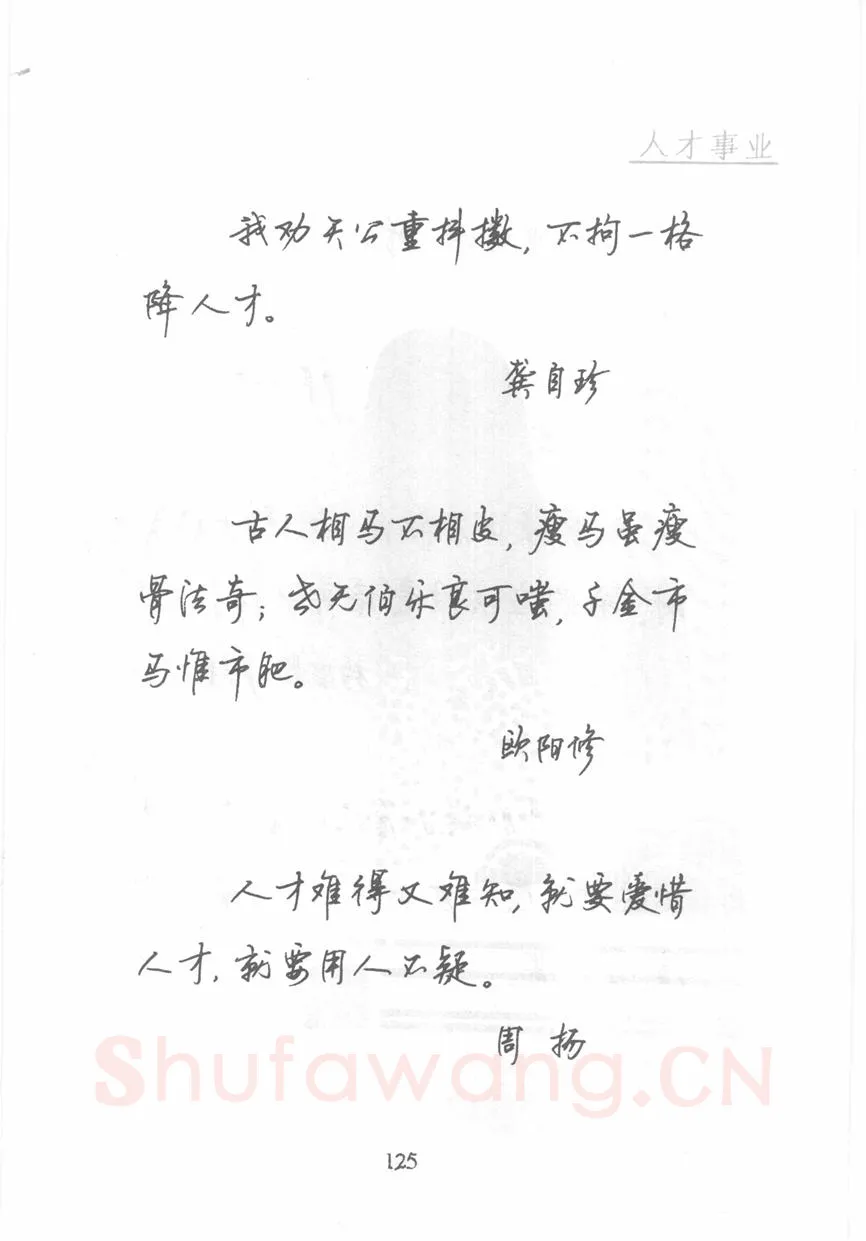 人才事业
我劝天公重抖擞,不拘一格
降人才。
龚自珍
古人相马不相皮,瘦马虽瘦
骨法奇;世无伯乐良可嗤,千金市
马惟市肥。
欧阳修
人才难得又难知,就要爱惜
人才,就要用人不疑。
周扬
Shufawang.CN
125